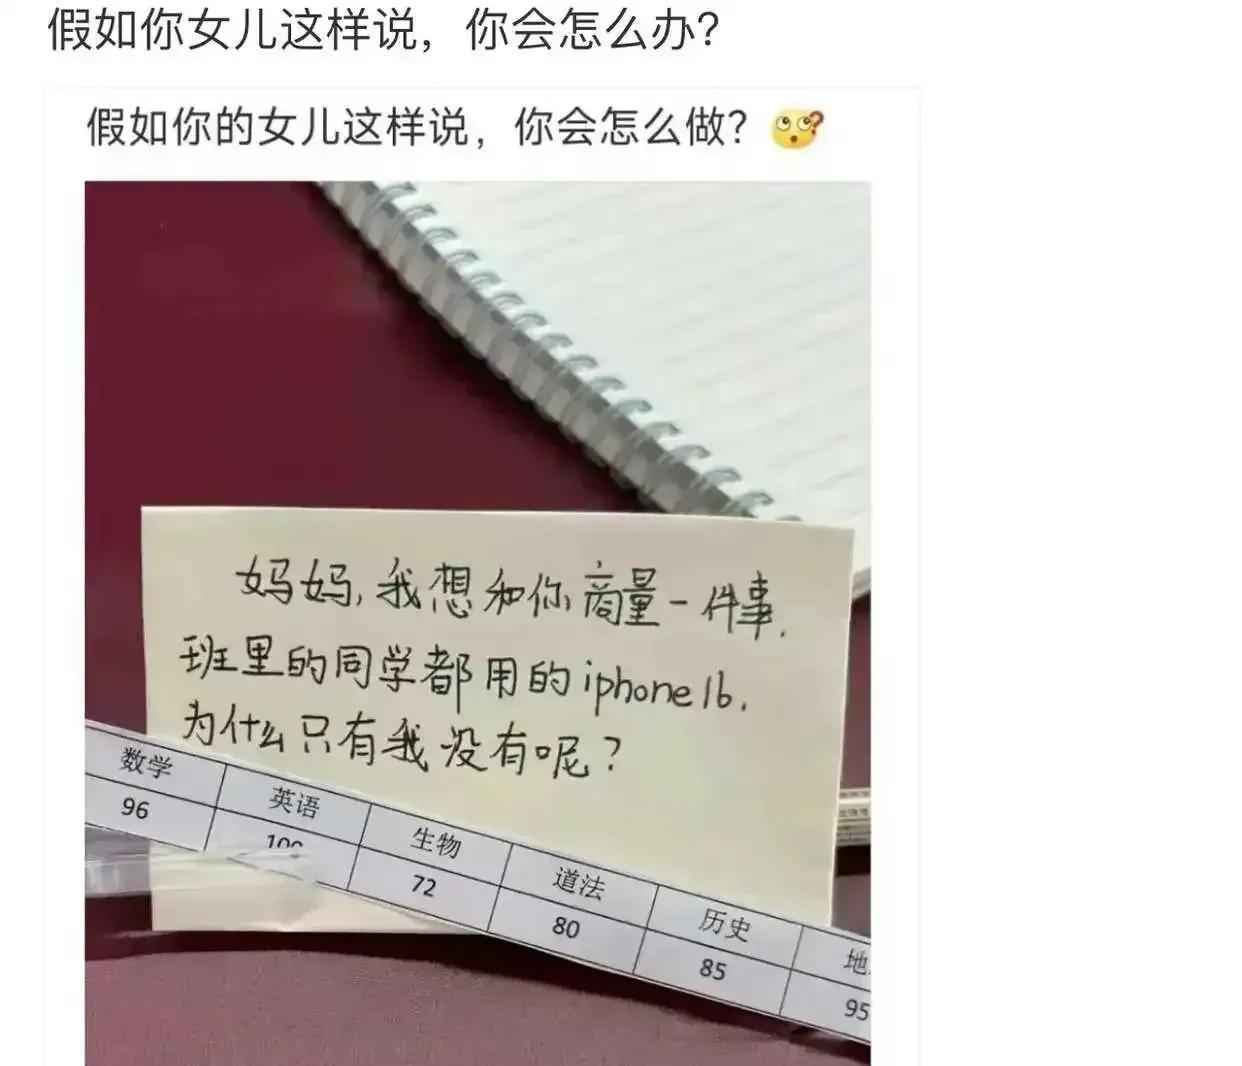 假如你女儿这样说，你会怎么办？
假如你的女儿这样说，你会怎么做？
妈妈，我想和你商量一件事．
班里的同学都用的iphone16．
为什么只有我没有呢？
数学 英语 生物 道法 历史 地
96 100 72 80 85 95